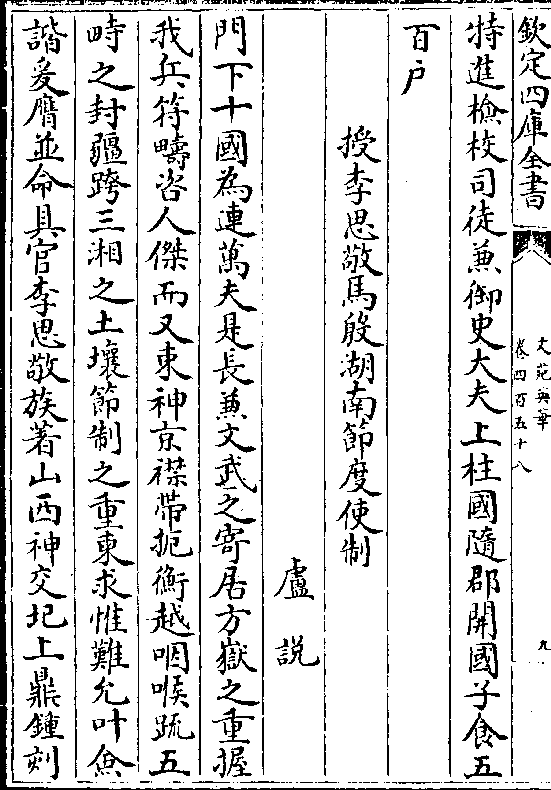 欽定四庫全書
文苑英華
卷四百五十八
九
特進檢校司徒兼御史大夫上柱國隨郡開國子食五
百户
授李思敬馬殷湖南節度使制
盧説
門下十國為連萬夫是長兼文武之寄居方嶽之重握
我兵符疇咨人傑而又東神京襟帶扼衡越咽喉䟽五
畤之封疆跨三湘之土壤節制之重柬求惟難允叶僉
諧爰膺並命具官李思敬族著山西神交圯上鼎鍾刻